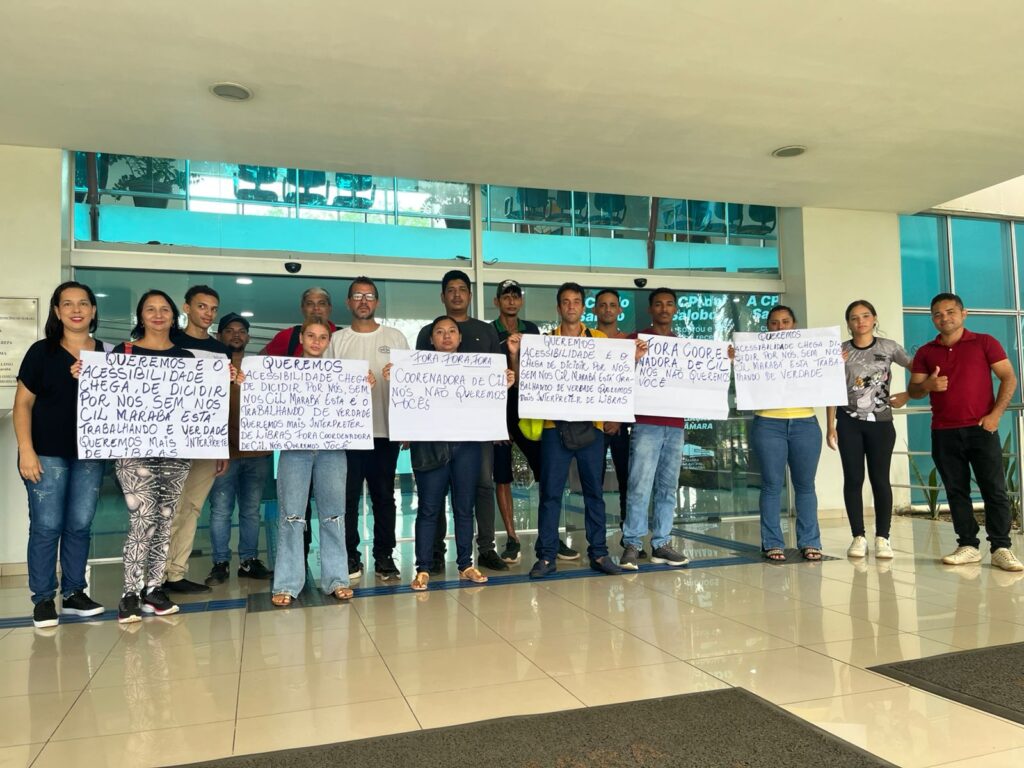 QUEREMOS E O
ACESSIBILIDADE
CHEGA, DE DICIDIR
POR NOS SEM NOS
CIL MARABÁ ESTA
TRABALHANDO E VERDADE
QUEREMOS MAIS INTERPRETER
DE LIBRAS
QUEREMOS
ACESSIBILIDADE CHEGA
DE DICIDIR POR NOS, SEM
NOS CIL MARABÁ ESTA E O
TRABALHANDO DE VERDADE
QUEREMOS MAIS INTERPRETER
DE LIBRAS FORA COORDENADORA
DE CIL, NOS QUEREMOS VOCÊ
FORA FORA FORA
COORENADORA DE CIL
NOS NÃO QUEREMOS
VOCÊS
QUEREMOS
ACESSIBILIDADE E O
CHEGA DE DICIDIR POR NOS
SEM NOS CIL MARABÁ ESTA
TRABALHANDO DE VERDADE QUEREMOS
MAIS INTERPRETER DE LIBRAS
FORA COORE
NADORA DE CIL
NOS NÃO QUEREMOS
VOCÊ
QUEREMOS
ACESSIBILIDADE CHEGA DI-
DICIDIR POR NOS, SEM NOS
CIL MARABÁ ESTA TRABA
LHANDO DE VERDADE
A CPI do
Salobo
A CP
CÂMARA